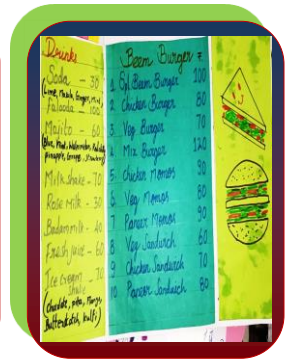 Drinks
Soda - 30
(Lime, Masala, Ginger, Mint)
Falooda - 100
Mojito - 60
(Blue, Mint, Watermelon,
pineapple, Orange, Strawberry)
Milkshake - 70
Rose Milk - 30
Badam milk - 40
Fresh juice - 60
Ice Cream - 70
Shake
(Chocolate, pista, Mango,
Butterscotch, kulfi)
Beem Burger ₹
1 Spl. Beem Burger 100
2 Chicken Burger 80
3 Veg Burger 70
4 Mix Burger 120
5 Chicken Momos 90
6 Veg Momos 80
7 Paneer Momos 90
8 Veg Sandwich 60
9 Chicken Sandwich 70
10 Paneer Sandwich 80